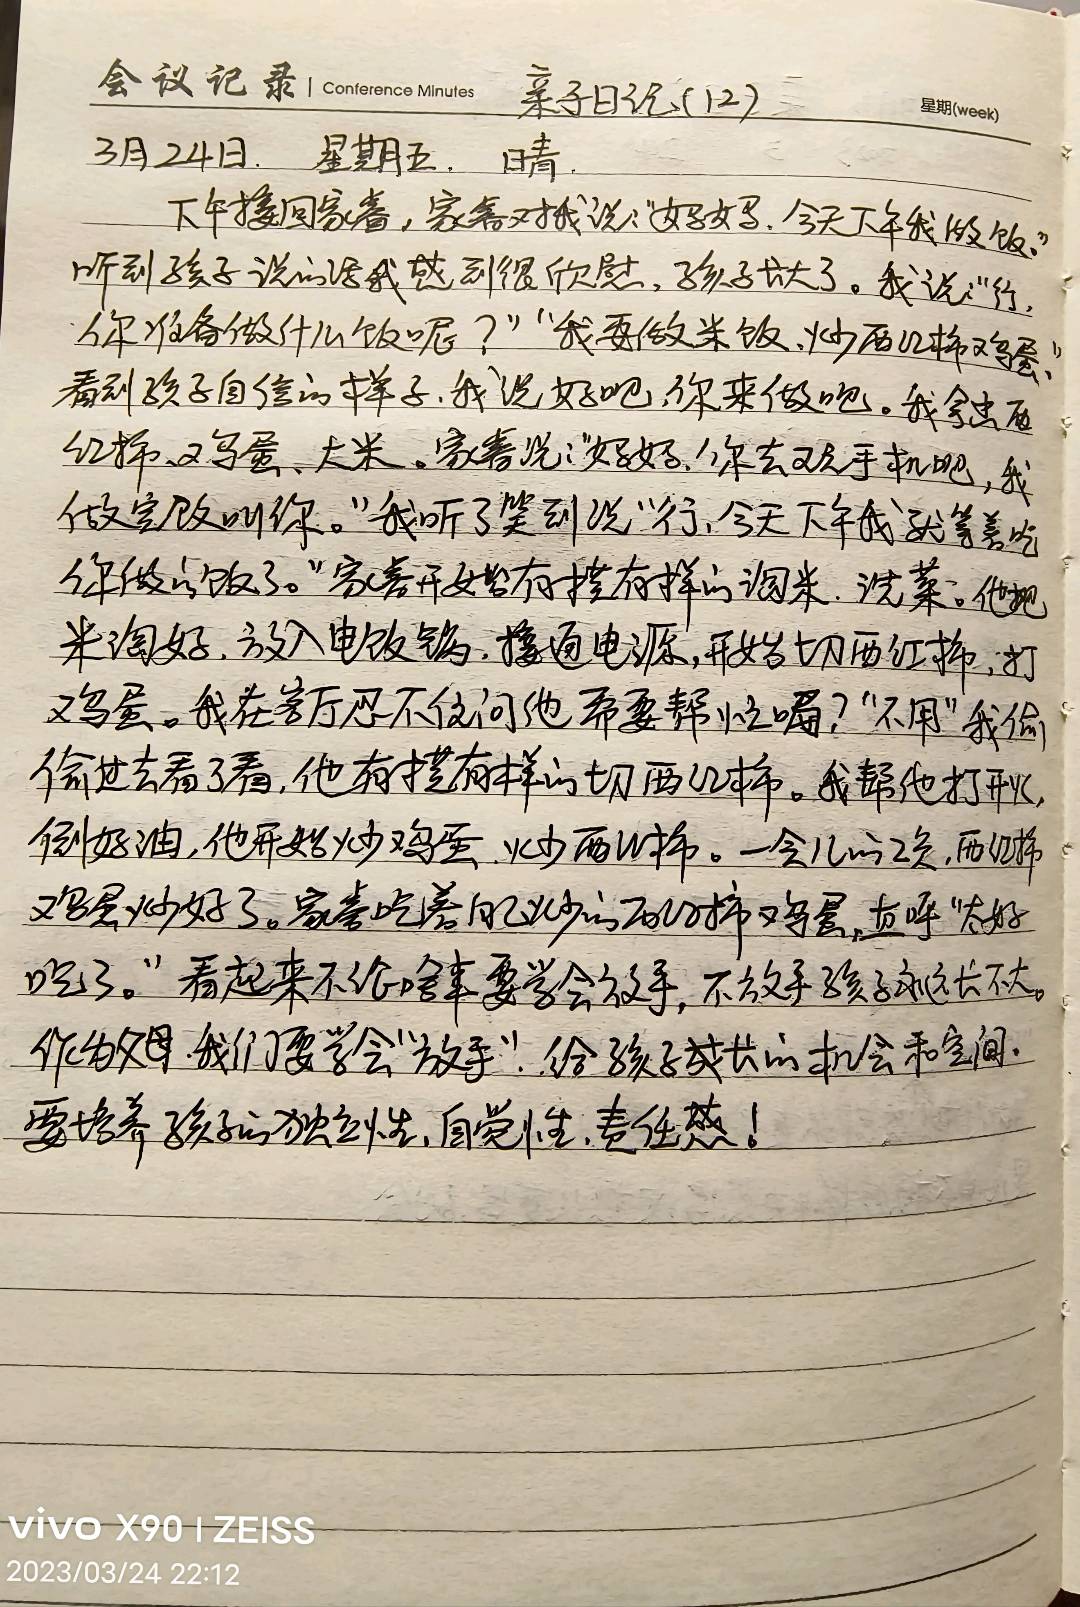 会议记录 | Conference Minutes 亲子日记(12) 星期(week)
3月24日. 星期五. 晴.
下午接回家睿,家睿对我说:“妈妈,今天下午我做饭。”
听到孩子说的话我感到很欣慰,孩子长大了。我说:“行,
你准备做什么饭呢?”“我要做米饭、炒西红柿鸡蛋。”
看到孩子自信的样子,我说好吧,你来做吧。我拿出西
红柿、鸡蛋、大米。家睿说:“妈妈,你去观手机吧,我
做完饭叫你。”我听了笑到说“行,今天下午我就等着吃
你做的饭了。”家睿开始有模有样的淘米、洗菜。他把
米淘好,放入电饭锅,接通电源,开始切西红柿,打
鸡蛋。我在客厅忍不住问他需要帮忙嘛?“不用”我偷
偷过去看了看,他有模有样的切西红柿。我帮他打开火,
倒好油,他开始炒鸡蛋、炒西红柿。一会儿的工夫,西红柿
鸡蛋炒好了。家睿吃着自己炒的西红柿鸡蛋,直呼“太好
吃了。”看起来不论啥事要学会放手,不放手孩子永远长不大。
作为父母,我们要学会“放手”,给孩子成长的机会和空间.
要培养孩子的独立性,自觉性,责任感!
vivo X90 | ZEISS
2023/03/24 22:12